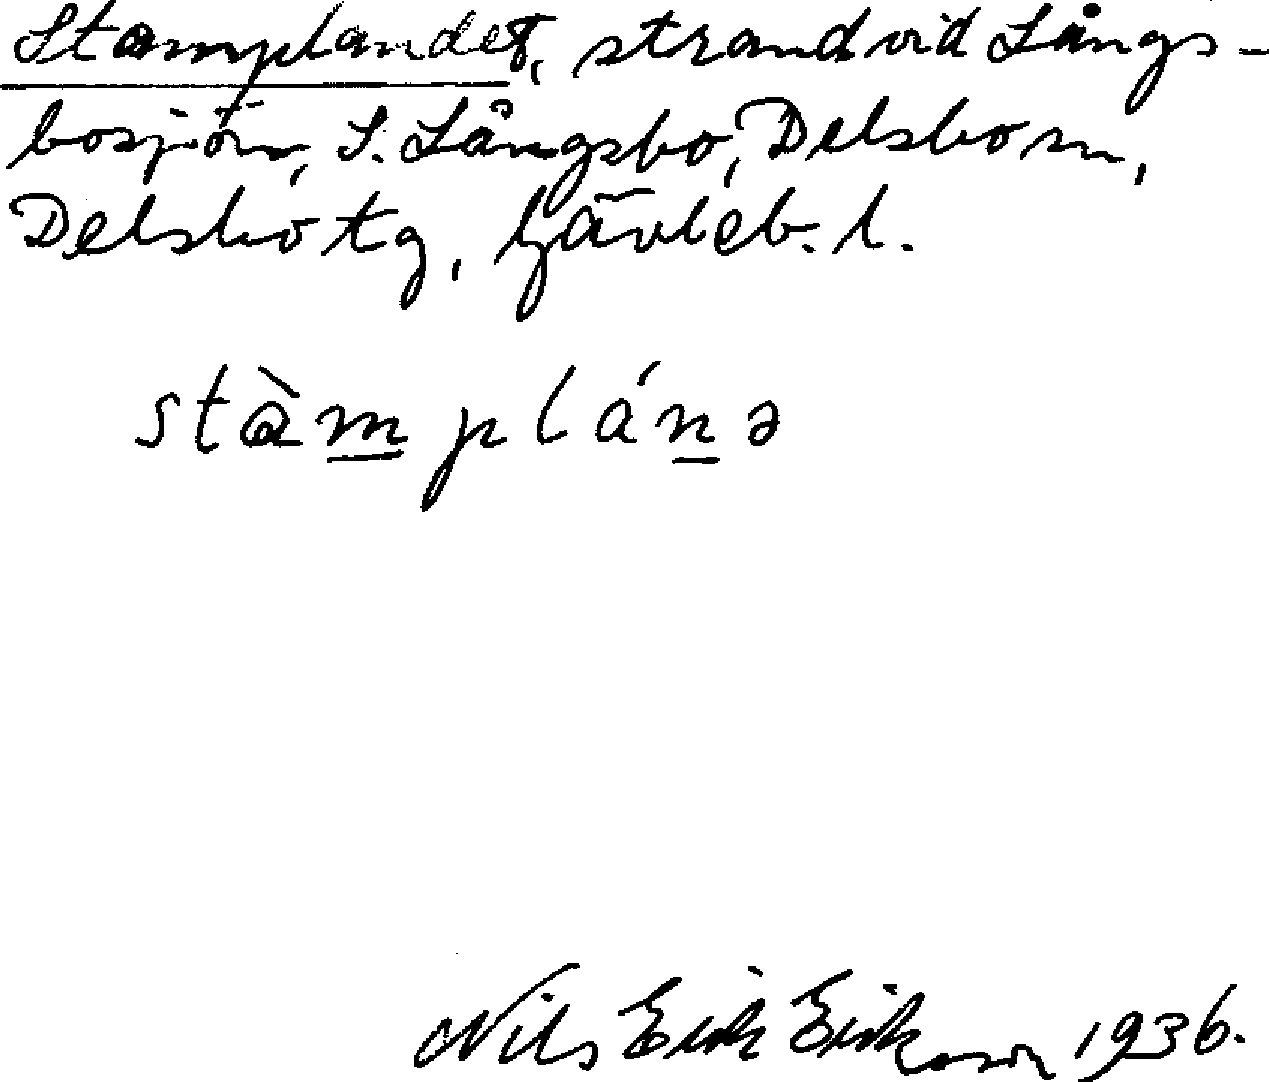 Stamplandet, strand vid Långs-
bosjön, S. Långsbo, Delsbo sn,
Delsbo tg, Gävleb. l.
stàm̲plán̲ə
Nils Erik Eriksson 1936.